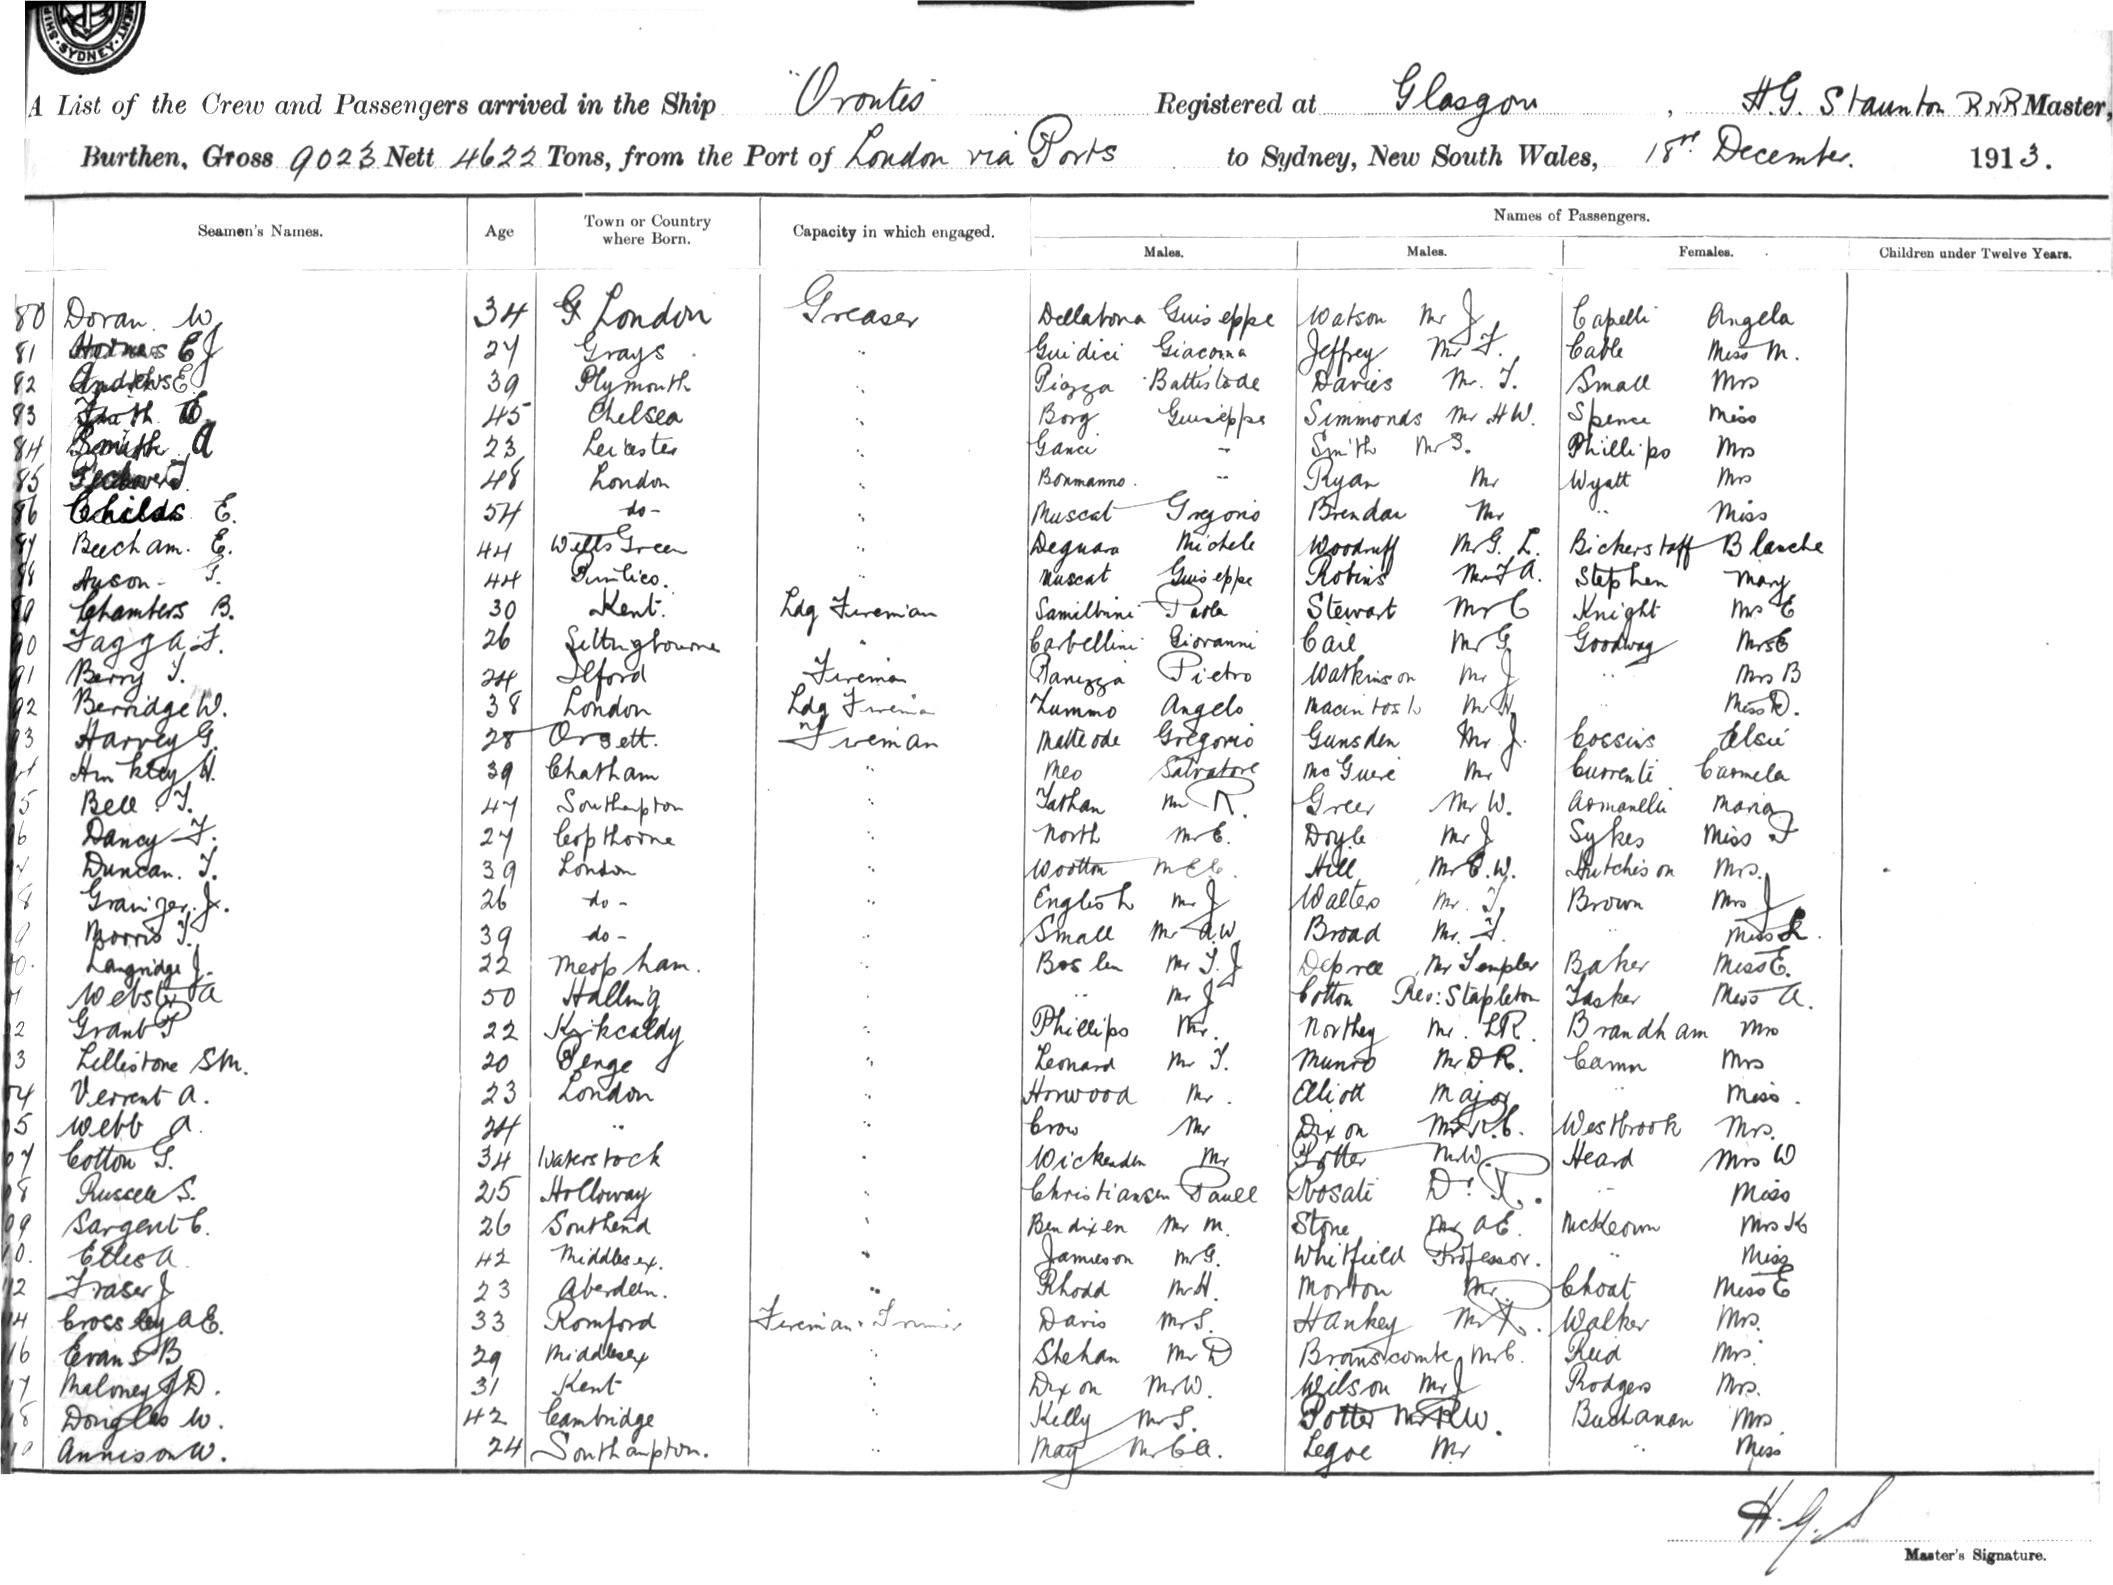 SYDNEY
A List of the Crew and Passengers arrived in the Ship "Orontes Registered at Glasgow, H.G. Staunton RNR Master,
Burthen, Gross 9023 Nett 4622 Tons, from the Port of London via Ports to Sydney, New South Wales, December. 1913.
Seamen's Names. Age Town or Country where Born. Capacity in which engaged. Names of Passengers.
Males. Males. Females. Children under Twelve Years.
80 Doran. W 34 London Greaser Dellabona Guiseppe Watson Mr J. Capelli Angela
81 E J 27 Grays " Guidici Giacoma Jeffrey Mr F. Cable Miss M.
82 Andrews E 39 Plymouth " Piazza Battistode Davies Mr. T. Small Mrs
83 45 Chelsea " Borg Guiseppe Simmonds Mr H W. Spence Miss
84 Smith A 23 Leicester " Ganci " Smith Mr S. Phillips Mrs
85 48 London " Bonmanno. " Ryan Mr Wyatt Mrs
86 Childs E. 54 do- " Muscat Gregorio Brendan Mr " Miss
87 Beecham. E. 44 Wells Green " Deguara Michele Woodruff Mr G. L. Bickerstaff Blanche
88 44 Pimlico. " Muscat Guiseppe Robins Mr F A. Stephen Mary
89 Chambers B. 30 Kent. Ldg Fireman Paola Stewart Mr C Knight Mrs E
90 Fagg A. F. 26 Sittingbourne " Carbellini Giovanni Cail Mr G. Goodway Mrs E
91 Berry T. 24 Ilford Fireman Panizza Pietro Watkinson Mr J " Mrs B
92 Berridge W. 38 London Ldg Fireman Zummo Angelo Macintosh Mr H. " Miss D.
93 Harvey G. 28 Orsett. Fireman Matteode Gregorio Gunsden Mr J. Cossins Elsie
94 Hinkley W. 39 Chatham " Meo Salvatore McGuire Mr Currenti Carmela
95 Bell T. 47 Southampton " Tathan Mr R. Greer Mr W. Armanelli Maria
96 Dancy F. 27 Copthorne " North Mr E. Doyle Mr J Sykes Miss F
97 Duncan. T. 39 London " Wootton Mr C. Hill Mr E. W. Hutchison Mrs.
98 Grainger. J. 26 do - " English Mr J Walters Mr. T. Brown Mrs J
99 Morris T. 39 do - " Small Mr A.W Broad Mr. F. " Miss L.
00. Langridge J. 22 Meopham. " Boslen Mr T. J Depree Mr Templer Baker Miss E.
01 Webster A 50 Halling " " Mr J Cotton Rev: Stapleton Tasker Miss A.
02 Grant P 22 Kirkcaldy " Phillips Mr. Northey Mr. L R. Brandham Mrs
03 Lellistone S M. 20 Penge " Leonard Mr T. Munro Mr D R. Camn Mrs
04 Verrent A. 23 London " Horwood Mr. Elliott Major " Miss.
05 Webb A. 24 " " Crow Mr Dixon Mr R. C. Westbrook Mrs.
07 Cotton G. 34 Waterstock " Wickenden Mr Potter Mr W. Heard Mrs W
08 Russell S. 25 Holloway " Christiansen Paull Rosati Dr. R. " Miss
09 Sargent C. 26 Southend " Bendixen Mr M. Stone Mr A E. McKeown Mrs K
10. Ellis A 42 Middlesex. " Jamieson Mr G. Whitfield Professor. " Miss
12 Fraser J 23 Aberdeen. " Rhodd Mr H. Morton Mr. Choat Miss E
14 Crossley A E. 33 Romford Fireman & Trimmer Davis Mr S. Hankey Mr A. Walker Mrs.
16 Evans B 29 Middlesex " Shehan Mr D Branscombe Mr C. Reid Mrs.
17 Maloney J D. 31 Kent " Dixon Mr W. Wilson Mr J Rodgers Mrs.
18 Douglas W. 42 Cambridge " Kelly Mr S. Potter Mr R W. Buchanan Mrs
19 Annison W. 24 Southampton. " May Mr C A. Legoe Mr " Miss
H. G. S
Master's Signature.